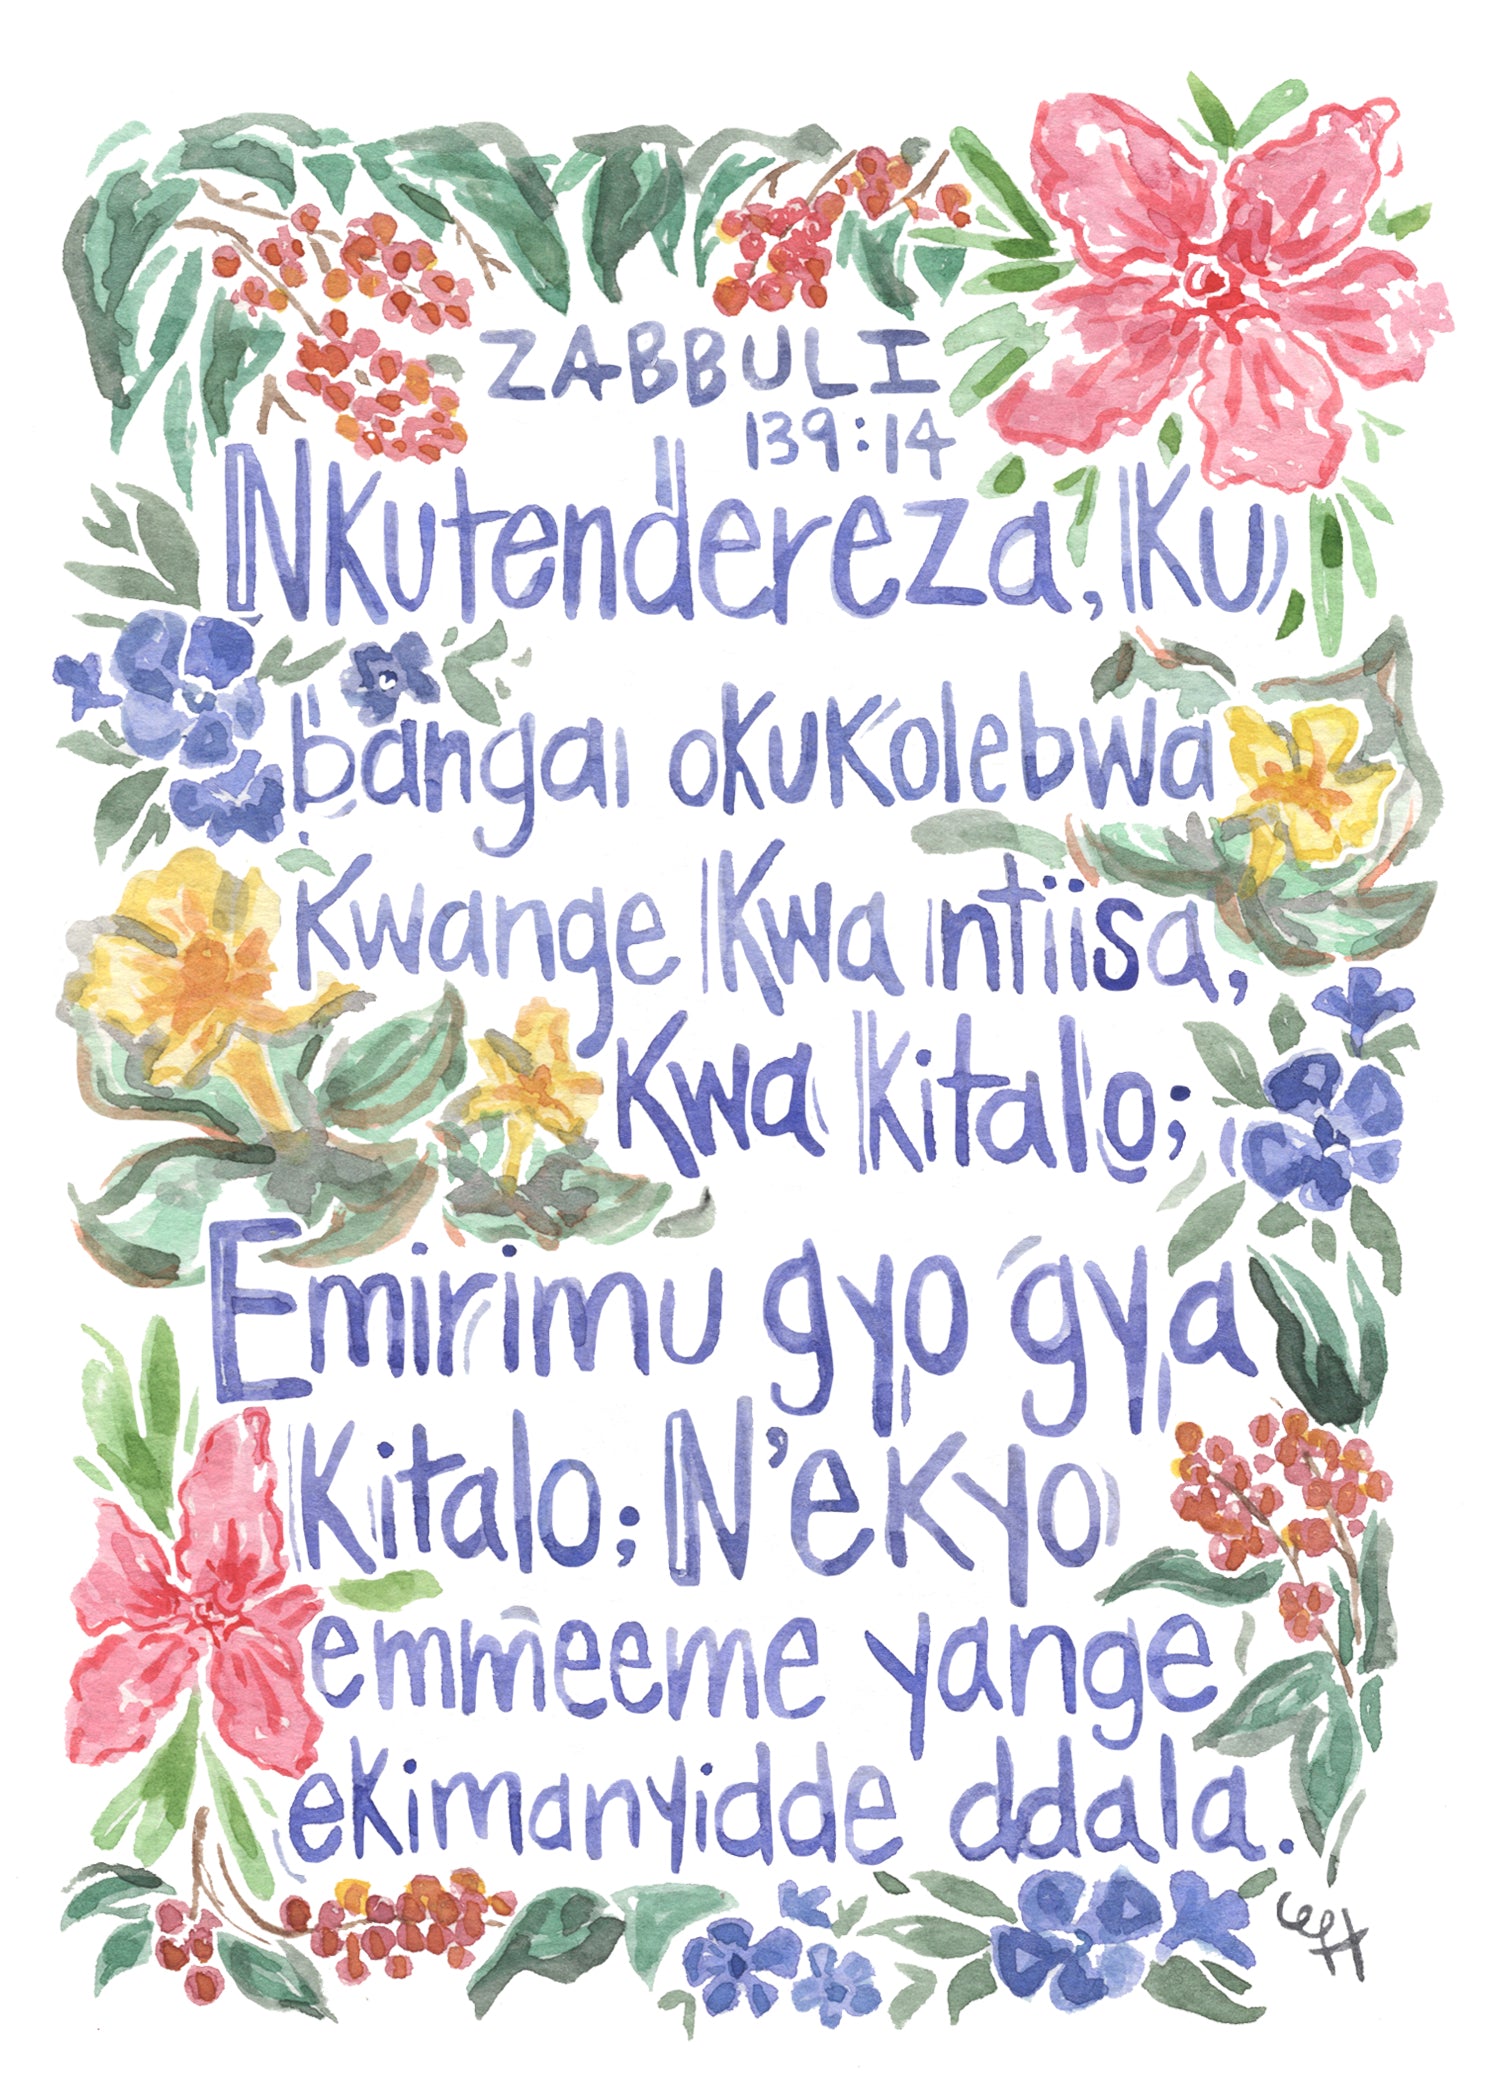 ZABBULI
139:14
Nkutendereza, Ku
banga okukolebwa
kwange Kwa ntiisa,
Kwa kitalo;
Emirimu gyo gya
Kitalo; N'ekyo
emmeeme yange
ekimanyidde ddala.